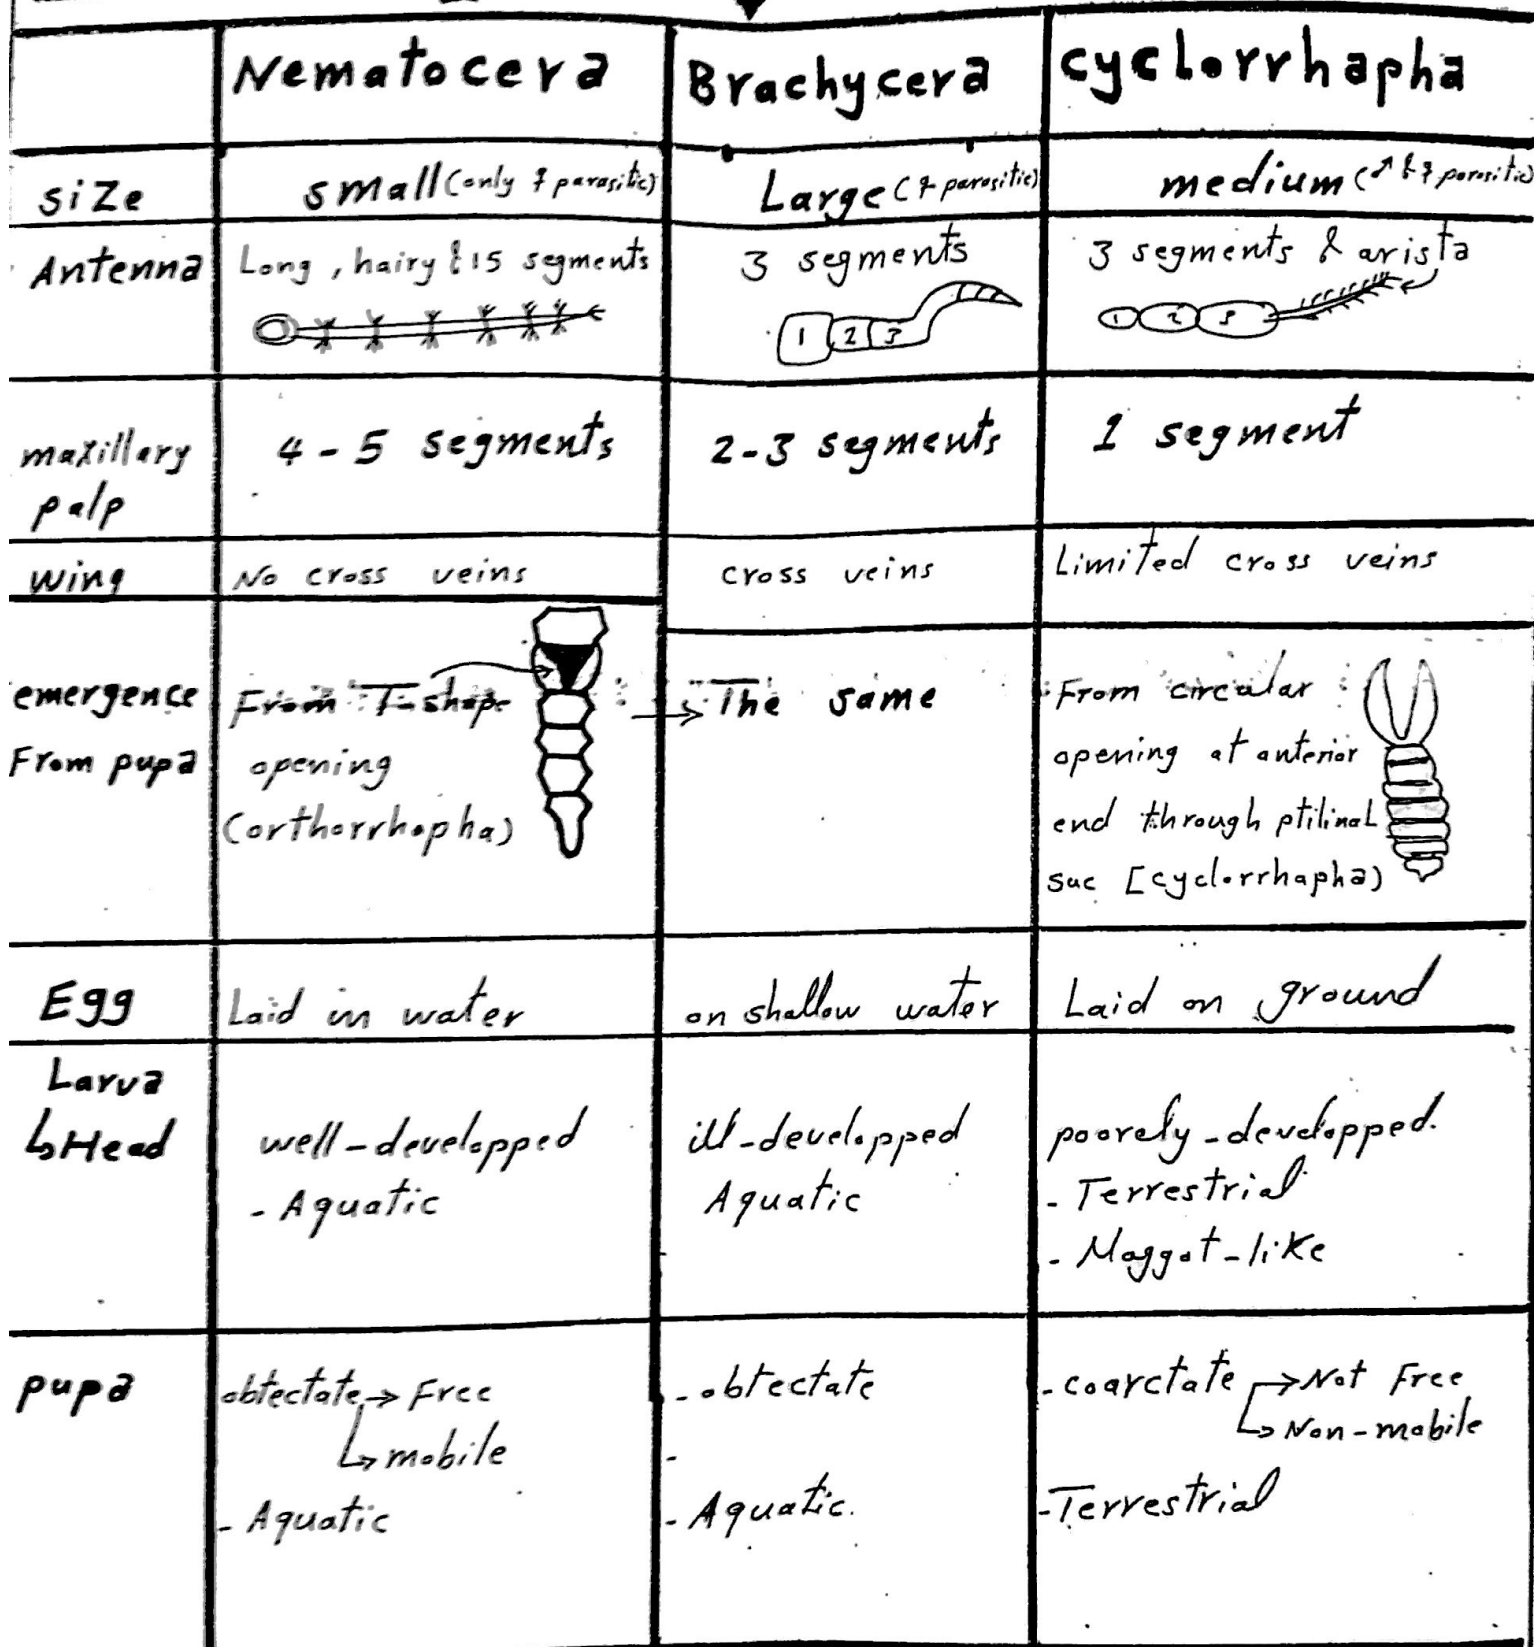 Nematocera
Brachycera
cyclorrhapha
size
small (only ♀ parasitic)
Large (♀ parasitic)
medium (♂ & ♀ parasitic)
Antenna
Long, hairy & 15 segments
3 segments
1 2 3
3 segments & arista
1 2 3
maxillary
palp
4 - 5 segments
2-3 segments
1 segment
wing
No cross veins
cross veins
Limited cross veins
emergence
From pupa
From T-shape
opening
(orthorrhapha)
→ The same
From circular
opening at anterior
end through ptilinal
sac [cyclorrhapha)
Egg
Laid in water
on shallow water
Laid on ground
Larva
↳ Head
well-developped
- Aquatic
ill-developped
Aquatic
poorely-developped.
- Terrestrial
- Maggot-like
pupa
obtectate → Free
↳ mobile
- Aquatic
- obtectate
-
- Aquatic.
- coarctate → Not Free
↳ Non-mobile
- Terrestrial